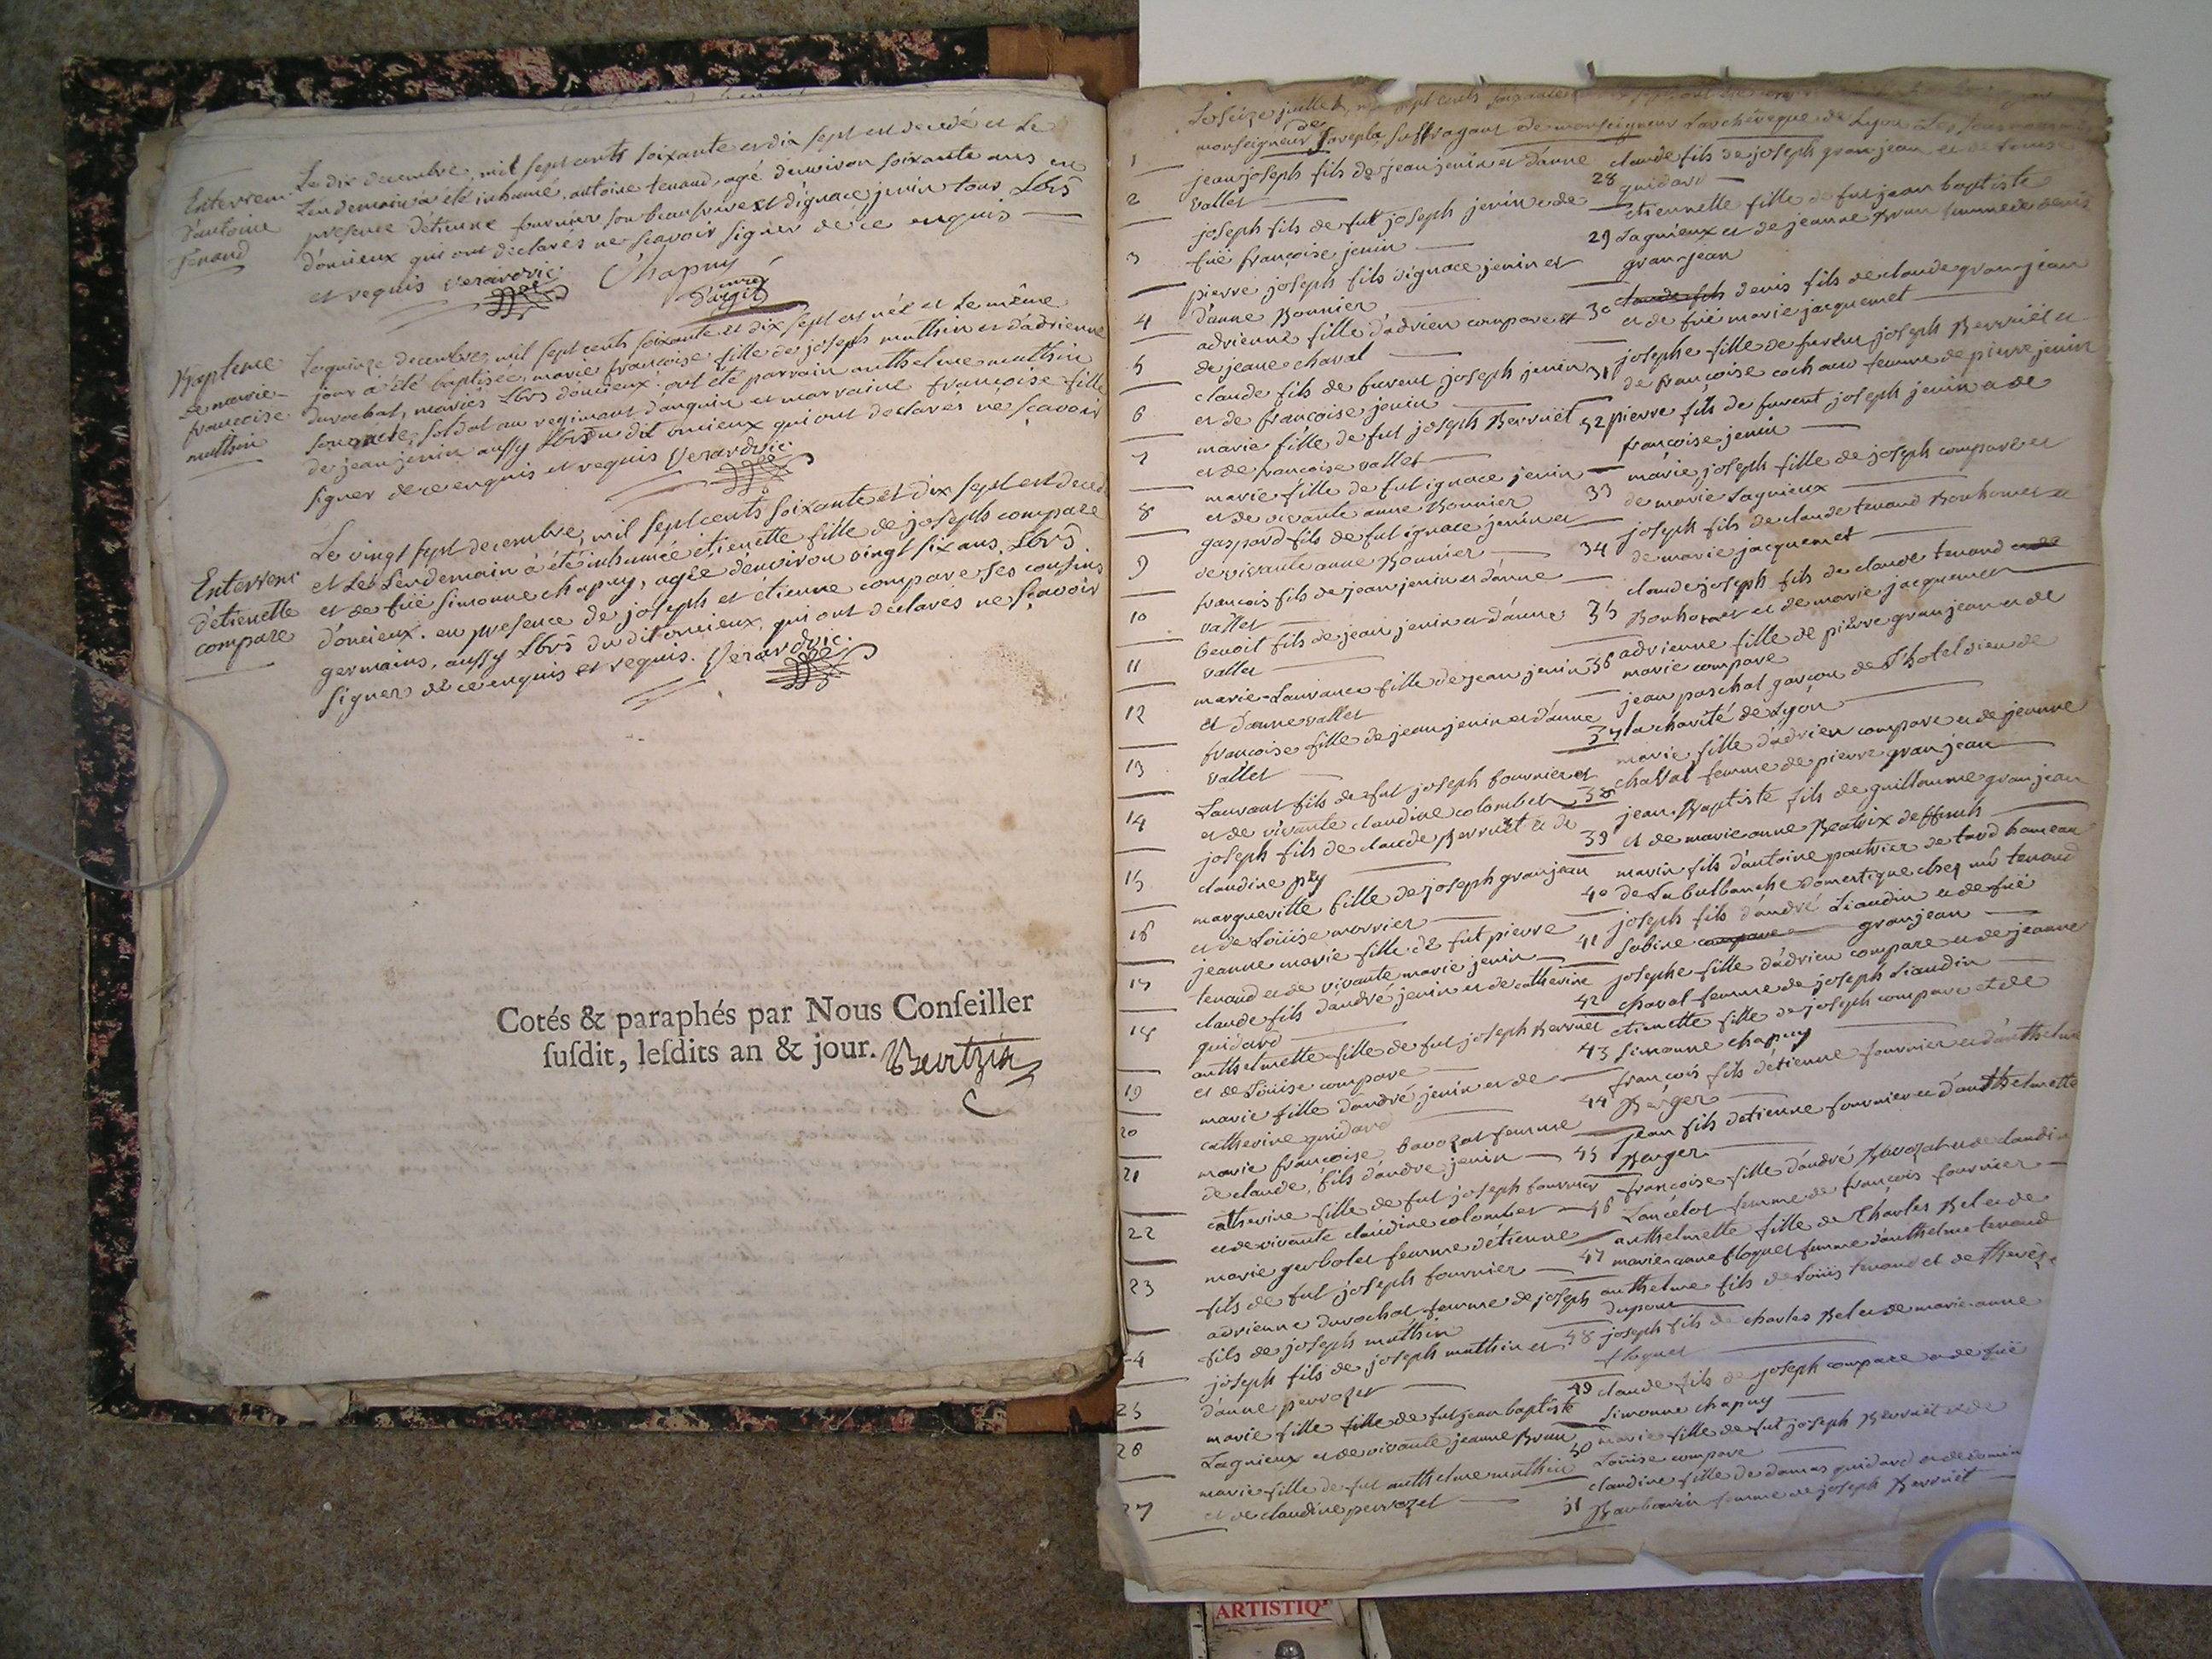 Enterrem.
d'antoine
tenand
Le dix decembre, mil sept cents soixante et dix sept est decedé et le
lendemain a été inhumé, antoine tenand, agé denviron soixante ans en
presence d'étienne fournier son beaufrere et d'ignace jenin tous Lbrs
d'oncieux qui ont declarés ne scavoir signer de ce enquis
et requis verardvic.
Chapuy
curé
d'argis
Bapteme
de marie-
francoise
mathin
Le quinze decembre, mil sept cents soixante et dix sept est née et le même
jour a été baptisée, marie francoise fille de joseph mathin et d'adrienne
durochat, mariés Lbrs d'oncieux. ont été parrain anthelme mathin
son oncle, soldat au regiment d'anguin et marraine francoise fille
de jean jenin aussy Lbrs du dit oncieux qui ont declarés ne scavoir
signer de ce enquis et requis Verardvic.
Enterrem.
d'étienette
compare
Le vingt sept decembre, mil sept cents soixante et dix sept est deced
et le Lendemain a été inhumée étienette fille de joseph compare
et de fuë simonne chapuy, agée denviron vingt six ans, Lbrs
d'oncieux. en presence de joseph et étienne compare ses cousins
germains, aussy Lbrs du dit oncieux, qui ont declarés ne scavoir
signer de ce enquis et requis. Verardvic.
Cotés & paraphés par Nous Conseiller
susdit, lesdits an & jour.
Le seize juillet, mil sept cents soixante
monseigneur de sarepta, suffragant de monseigneur Larchevêque de Lyon
1
jean joseph fils de jean jenin et d'anne
vallet
2
joseph fils de fut joseph jenin et de
fuë francoise jenin
3
pierre joseph fils d'ignace jenin et
d'anne Bonnier
4
adrienne fille d'adrien compare et
de jeane chaval
5
claude fils de furent joseph jenin
et de francoise jenin
6
marie fille de fut joseph Berruët
et de francoise vallet
7
marie fille de fut ignace jenin
et de vivante anne Bonnier
8
gaspard fils de fut ignace jenin et
de vivante anne Bonnier
9
francois fils de jean jenin et d'anne
vallet
10
benoit fils de jean jenin et d'anne
vallet
11
marie-Laurance fille de jean jenin
et d'anne vallet
12
francoise fille de jean jenin et d'anne
vallet
13
Laurant fils de fut joseph fournier et
et de vivante claudine colombet
14
joseph fils de claude Berruët et de
claudine pey
15
margueritte fille de joseph granjean
et de Loüise morrier
16
jeanne marie fille de fut pierre
tenand et de vivante marie jenin
17
claude fils d'andré jenin et de catherine
guidard
18
anthelmette fille de fut joseph Berruet
et de Loüise compare
19
marie fille d'andré jenin et de
catherine guidard
20
marie francoise bavozat femme
de claude, fils d'andre jenin
21
catherine fille de fut joseph fournier
et de vivante claudine colombet
22
marie gerbolet femme d'étienne
fils de fut joseph fournier
23
adrienne durochat femme de joseph
fils de joseph mathin
joseph fils de joseph mathin et
d'anne perrozet
25
marie fille fille de fut jean baptiste
Lagnieux et de vivante jeanne Brun
26
marie fille de fut anthelme mathin
et de claudine perrozet
27
claude fils de joseph granjean et de Louise
guidard
28
etiennette fille de fut jean baptiste
Lagnieux et de jeanne Brun femme de denis
granjean
29
claude fils denis fils de claude granjean
et de fuë marie jacquemet
30
josephe fille de furent joseph Berruët et
de françoise cochan femme de pierre jenin
31
pierre fils de furent joseph jenin et de
francoise jenin
32
marie joseph fille de joseph compare et
de marie Lagnieux
33
joseph fils de claude tenand Bonhomet et
de marie jacquemet
34
claude joseph fils de claude tenand et de
Bonhomet et de marie jacquemet
35
adrienne fille de pierre granjean et de
marie compare
36
jean paschal garçon de l'hotel dieu de
la charité de Lyon
37
marie fille d'adrien compare et de jeanne
chaval femme de pierre granjean
38
jean Baptiste fils de guillaume granjean
et de marie anne Beatrix deffunts
39
marin fils d'antoine pautrier de tard hameau
de Labulbanche domestique chez mr tenand
40
joseph fils d'andré Liaudin et de fuë
sabine compare granjean
41
josephe fille d'adrien compare et de jeanne
chaval femme de joseph Liaudin
42
etienette fille de joseph compare et de
simonne chapuy
43
francois fils d'etienne fournier et d'anthelme
Berger
44
jean fils d'etienne fournier et d'anthelmette
Berger
45
francoise fille d'andré Bavozat et de claudin
Lancelot femme de francois fournier
46
anthelmette fille de charles Bel et de
marie-anne floquet femme d'anthelme tenand
47
anthelme fils de Loüis tenand et de Therèse
dupont
48
joseph fils de charles Bel et de marie-anne
floquet
49
claude fils de joseph compare et de fuë
simonne chapuy
50
marie fille de fut joseph Berruët et de
Loüise compare
51
claudine fille de damas guidard et de
femme de joseph Berruët
ARTISTIQ